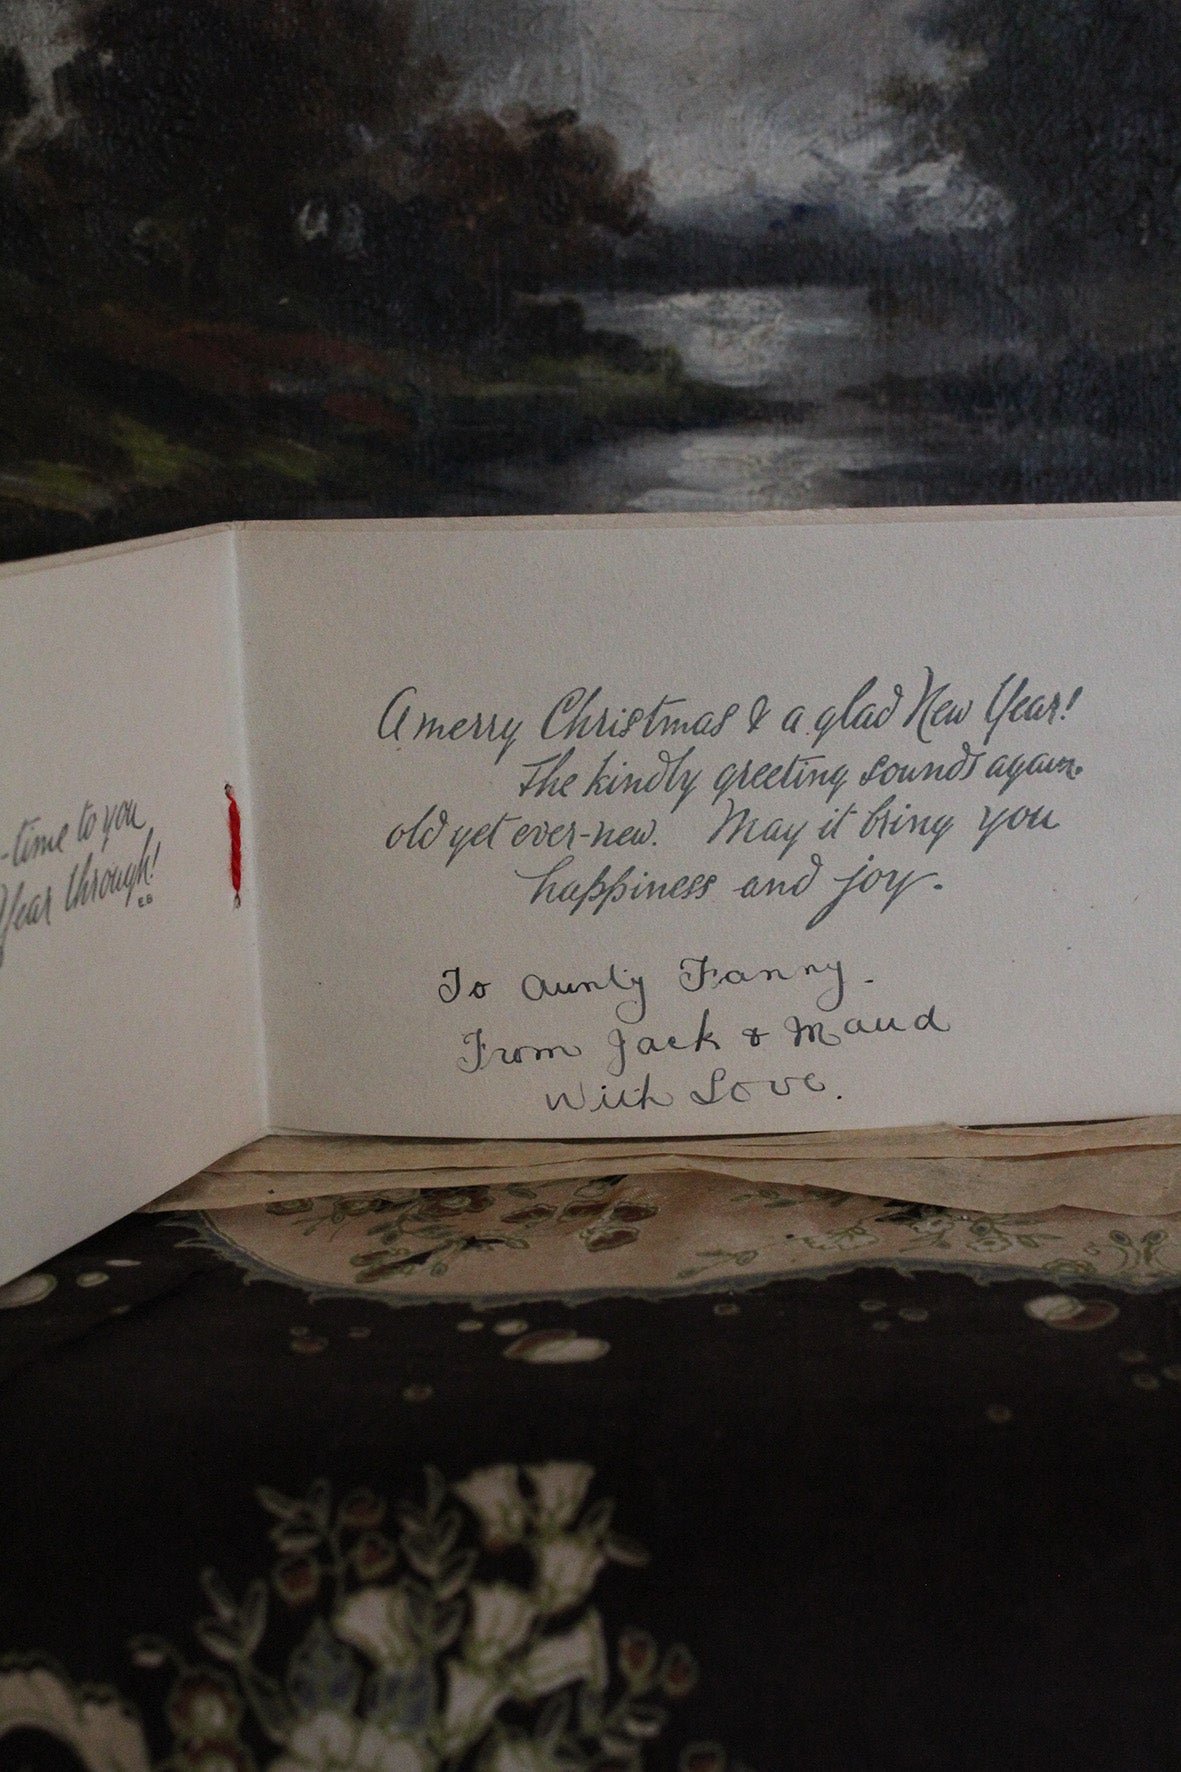 -time to you
Year through!
E.B
A merry Christmas & a glad New Year!
The kindly greeting sounds again.
old yet ever-new. May it bring you
happiness and joy.
To Aunty Fanny.
From Jack & Maud
With Love.